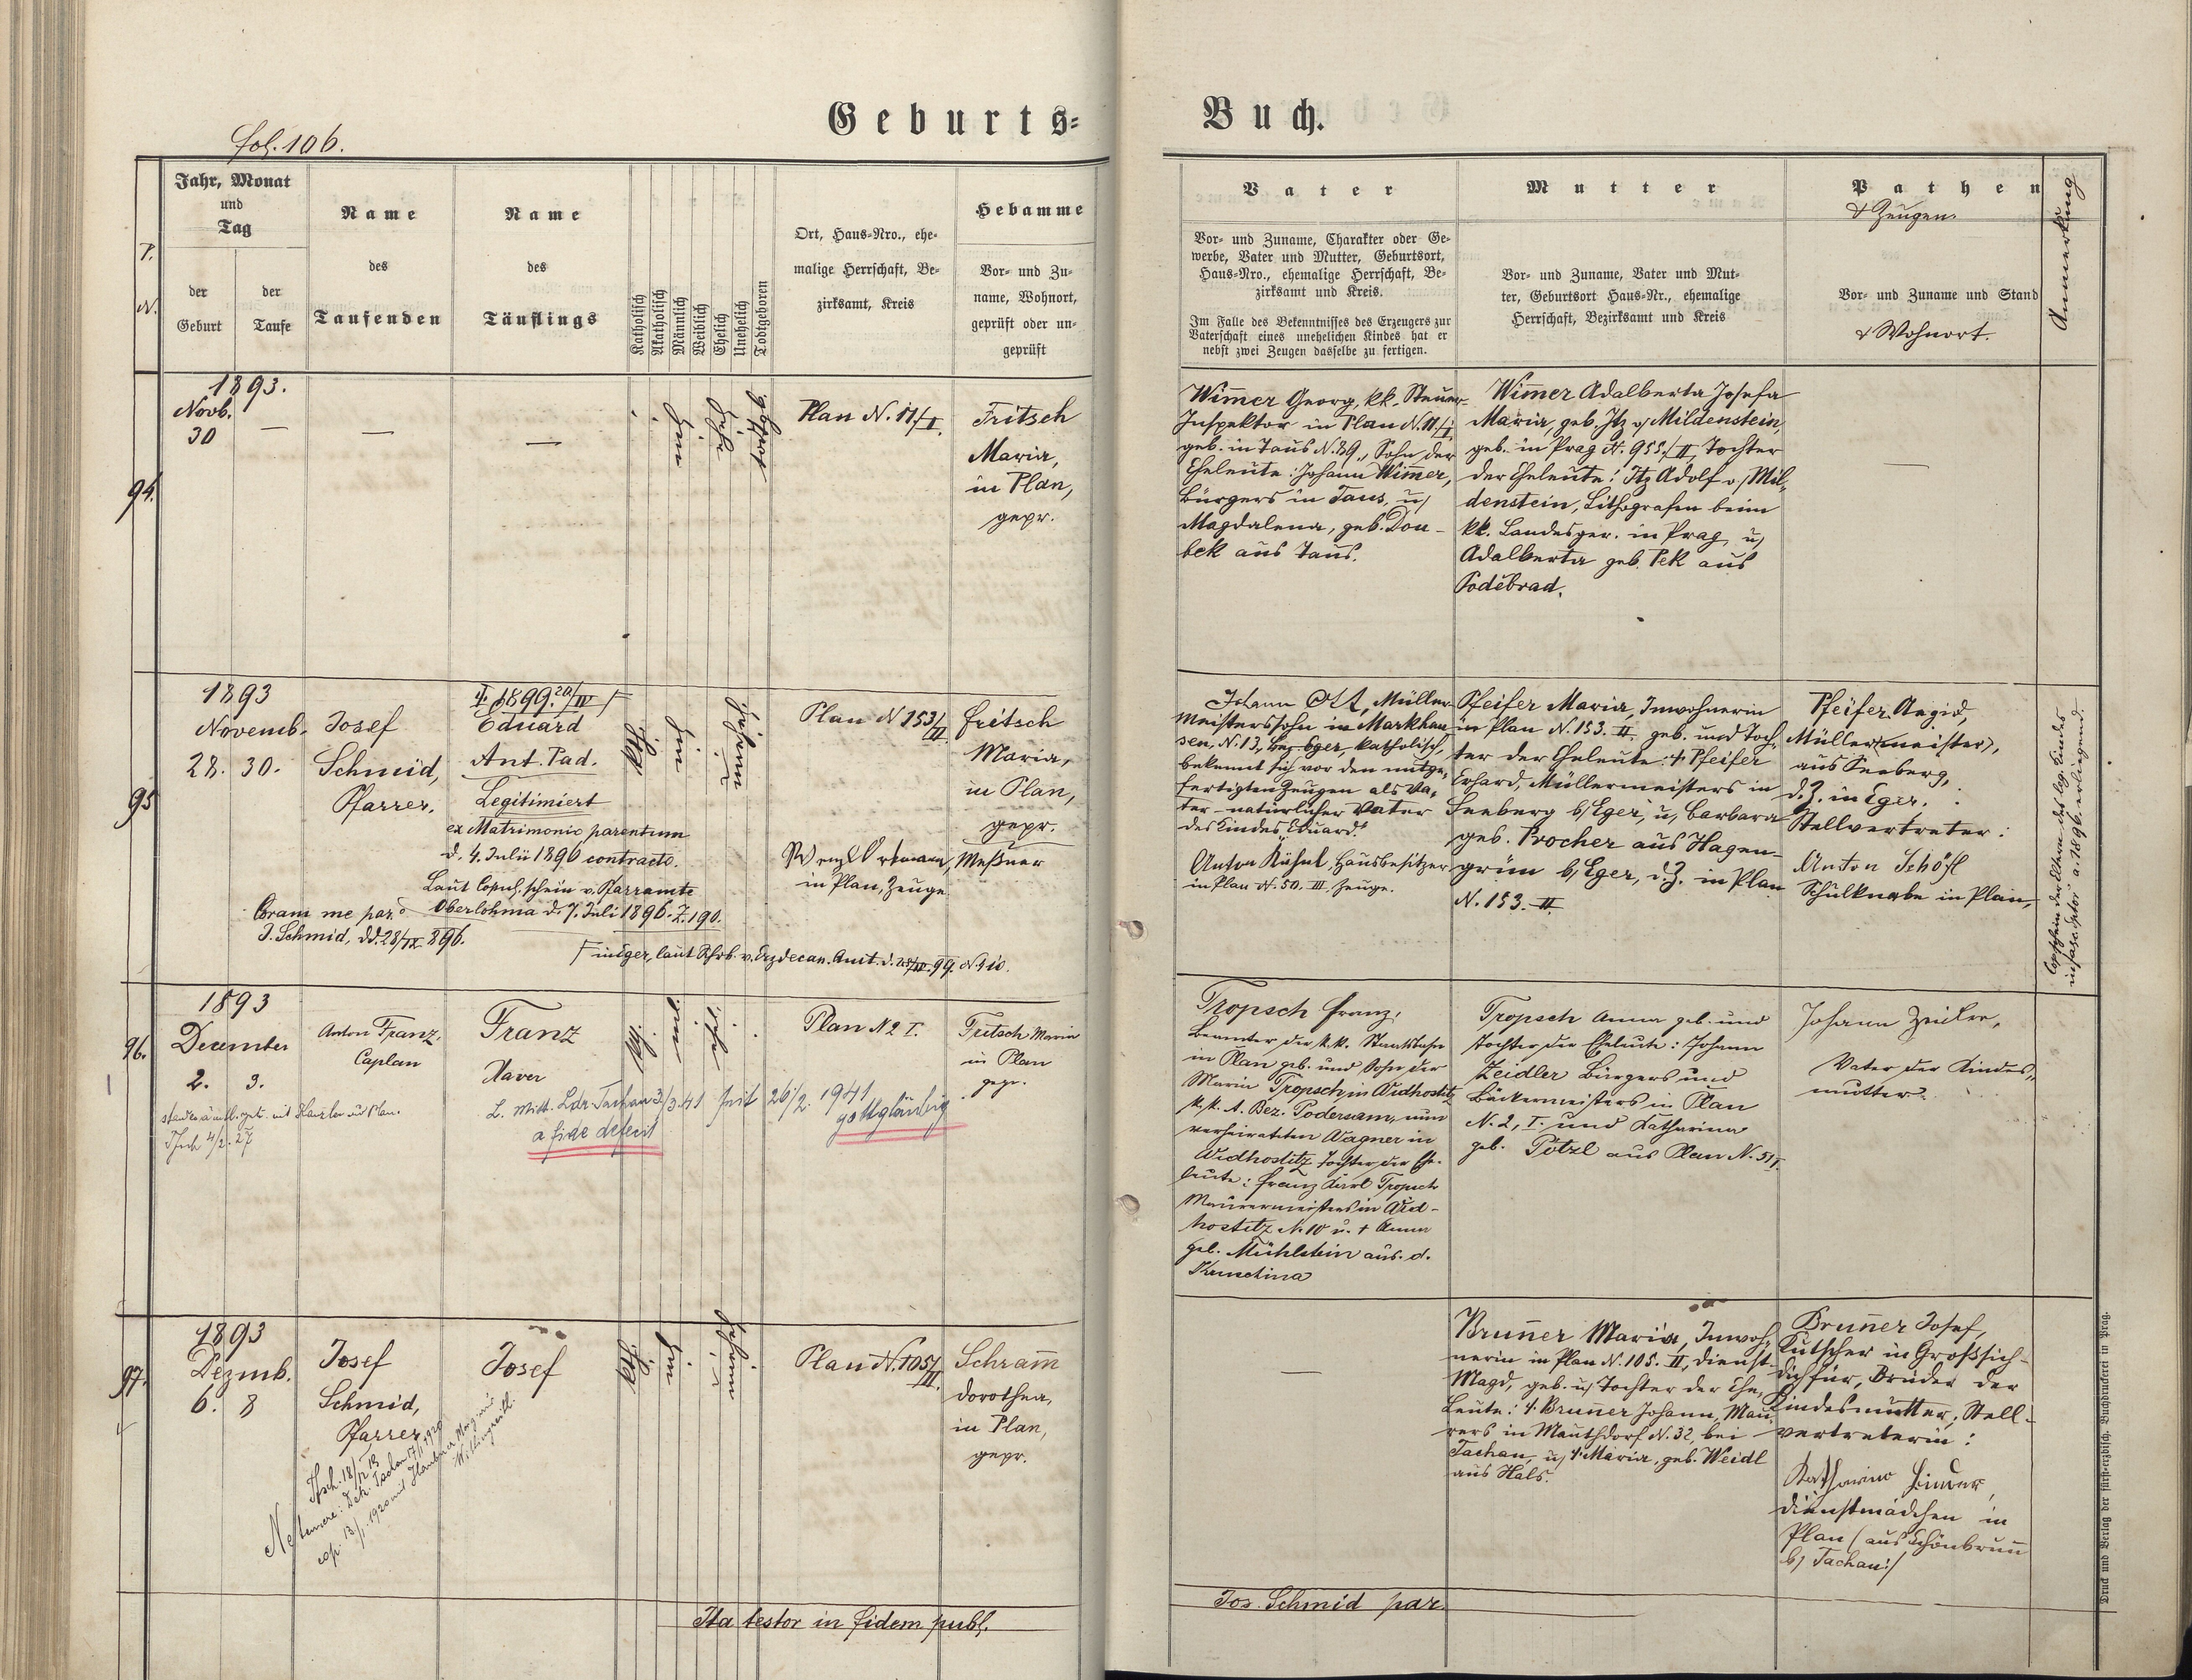 Geburts-
Buch.
fol. 106.
P.
N.
Jahr, Monat
und
Tag
der
Geburt
der
Taufe
Name
des
Taufenden
Name
des
Täuflings
Katholisch
Akatholisch
Männlich
Weiblich
Ehelich
Unehelich
Todtgeboren
Ort, Haus-Nro., ehe-
malige Herrschaft, Be-
zirksamt, Kreis
Hebamme
Vor- und Zu-
name, Wohnort,
geprüft oder un-
geprüft
Vater
Vor- und Zuname, Charakter oder Ge-
werbe, Vater und Mutter, Geburtsort,
Haus-Nro., ehemalige Herrschaft, Be-
zirksamt und Kreis.
Im Falle des Bekenntnisses des Erzeugers zur
Vaterschaft eines unehelichen Kindes hat er
nebst zwei Zeugen dasselbe zu fertigen.
Mutter
Vor- und Zuname, Vater und Mut-
ter, Geburtsort Haus-Nr., ehemalige
Herrschaft, Bezirksamt und Kreis
Pathen
& Zeugen.
Vor- und Zuname und Stand
& Wohnort.
Anmerkung
94.
1893.
Novb.
30
Plan N. 11/I.
Fritsch
Maria,
in Plan,
gepr.
Wim̄er Georg, kk. Steuer-
Inspektor in Plan N. 11./I.
geb. in Taus N. 89., Sohn der
Eheleute: Johann Wim̄er,
Bürgers in Taus, u/
Magdalena, geb. Dou-
bek aus Taus.
Wim̄er Adalberta Josefa
Maria, geb. Itz v/Mildenstein,
geb. in Prag N. 955./II, Tochter
der Eheleute: Itz Adolf v/Mil-
denstein, Lithografen beim
kk. Landesger. in Prag, u/
Adalberta geb. Pek aus
Poděbrad.
95
1893
Novemb.
28. 30.
Josef
Schmid,
Pfarrer.
† 1899. 20/IV
Eduard
Ant. Pad.
Legitimiert
ex Matrimonio parentum
d. 4. Julii 1896 contracto.
Laut Copul. schein v. Pfarramte
Oberlohma d. 7. Juli 1896. Z. 190.
Coram me par.
J. Schmid, dd. 28/IX. 896.
Plan N 153/II
Fritsch
Maria,
in Plan,
gepr.
Meßner
in Plan, Zeuge.
Johann Ott, Müller-
meisterssohn in Markhau-
sen, N. 13, Bez. Eger, katholisch,
bekennt sich vor den mitge-
fertigten Zeugen als Va-
ter natürlicher Vater
des Kindes „Eduard."
Anton Kühnl, Hausbesitzer
in Plan N. 50. III. Zeuge.
Pfeifer Maria, Inwohnerin
in Plan N. 153. II. geb. und Toch-
ter der Eheleute: † Pfeifer
Erhard, Müllermeisters in
Seeberg b/Eger, u, Barbara
geb. Procher aus Hagen-
grün b/Eger, d.Z. in Plan
N. 153. II.
Pfeifer Aegid,
Müller(meister),
aus Seeberg,
d.Z. in Eger.
Stellvertreter:
Anton Schöfl
Schulknabe in Plan,
96.
1893
December
2. 3.
Anton Franz,
Caplan
Franz
Xaver
Plan N 2 I.
Fritsch Maria
in Plan
gepr.
a fide defecit
26/2. 1941
gottgläubig
Tropsch Franz,
Beamter der k.k. Staatsbahn
in Plan geb. und Sohn der
Maria Tropsch in Widhostitz
k.k. A. Bez. Podersam, nun
verheirateten Wagner in
Widhostitz Tochter der Ehe-
leute: Franz Karl Tropsch
Maurermeisters in Wid-
hostitz N. 10 u. † Anna
geb. Mühlstein aus d.
Kruschina
Tropsch Anna geb. und
Tochter der Eheleute: Johann
Zeidler Bürgers und
Bäckermeisters in Plan
N. 2, I. und Katharina
geb. Pötzl aus Plan N. 51 I.
Johann Zeidler,
Vater der Kindes-
mutter.
97.
1893
Dezmb.
6. 8
Josef
Schmid,
Pfarrer
Josef
Plan N. 105/II.
Schram̄
Dorothea,
in Plan,
gepr.
Brun̄er Maria, Inwoh-
nerin in Plan N. 105. II, Dienst-
Magd, geb. u/ Tochter der Ehe-
Leute: †. Brun̄er Johann, Mau-
rers in Mauthdorf N. 32, bei
Tachau, u/ †. Maria, geb. Weidl
aus Hals.
Brun̄er Josef,
Kutscher in Großsich-
dichfür, Bruder der
Kindesmutter, Stell-
vertreterin:
Dienstmädchen in
Plan (aus Schönbrun̄
b/ Tachau:/
Ita testor in fidem publ.
Jos. Schmid par.
Druck und Verlag der fürst-erzbisch. Buchdruckerei in Prag.